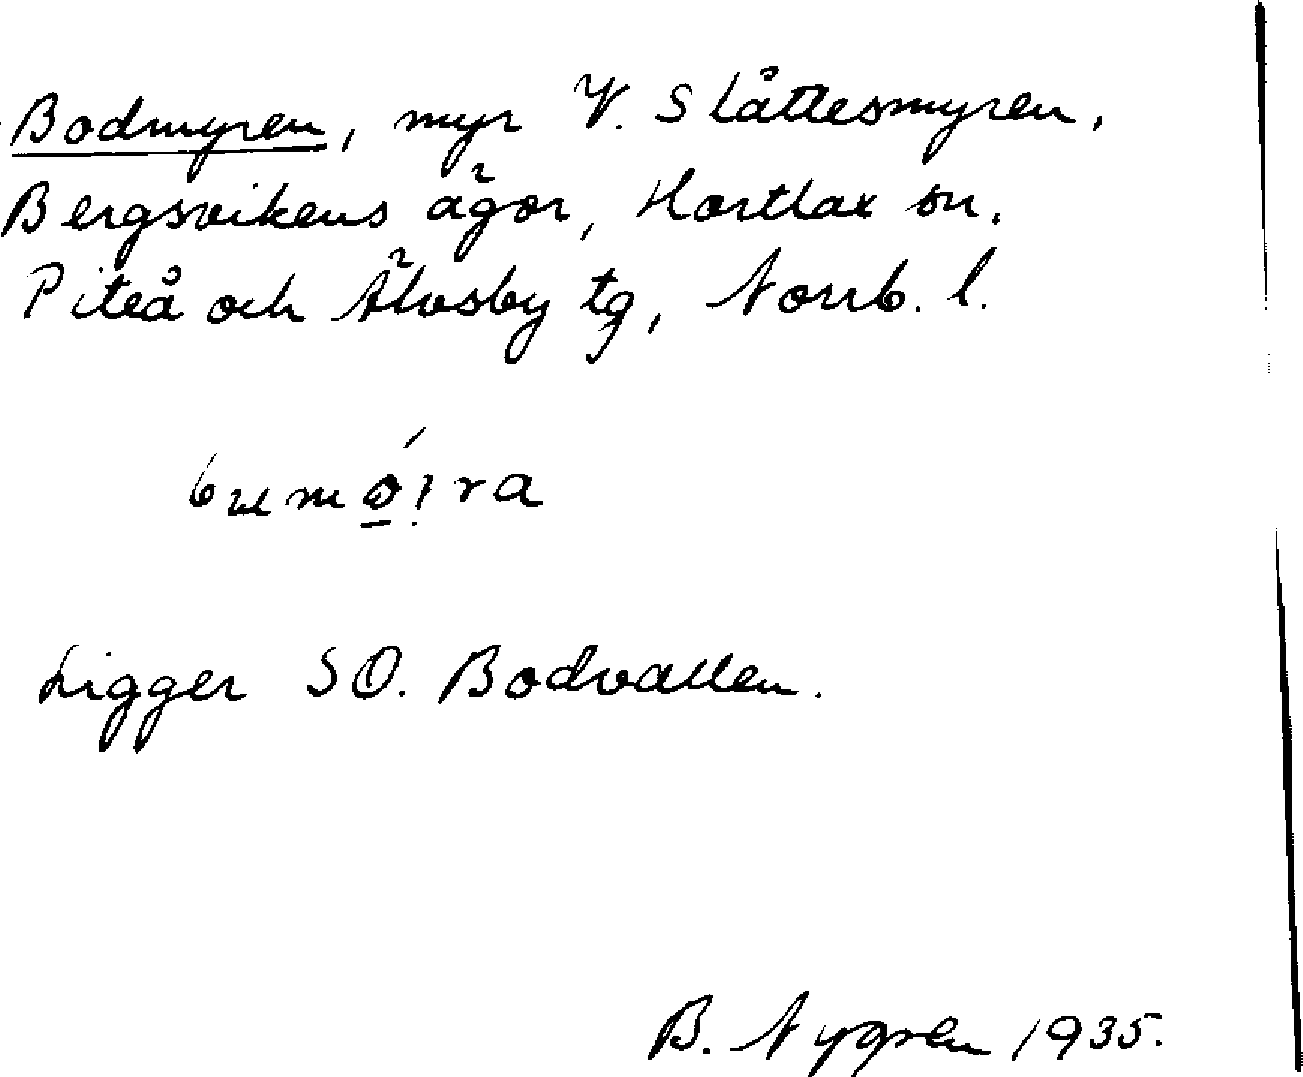 Bodmyren, myr V. Slåttesmyren,
Bergsvikens ägor, Hortlax sn,
Piteå och Älvsby tg, Norrb. l.
Ligger SO. Bodvallen.
B. Nygren 1935.